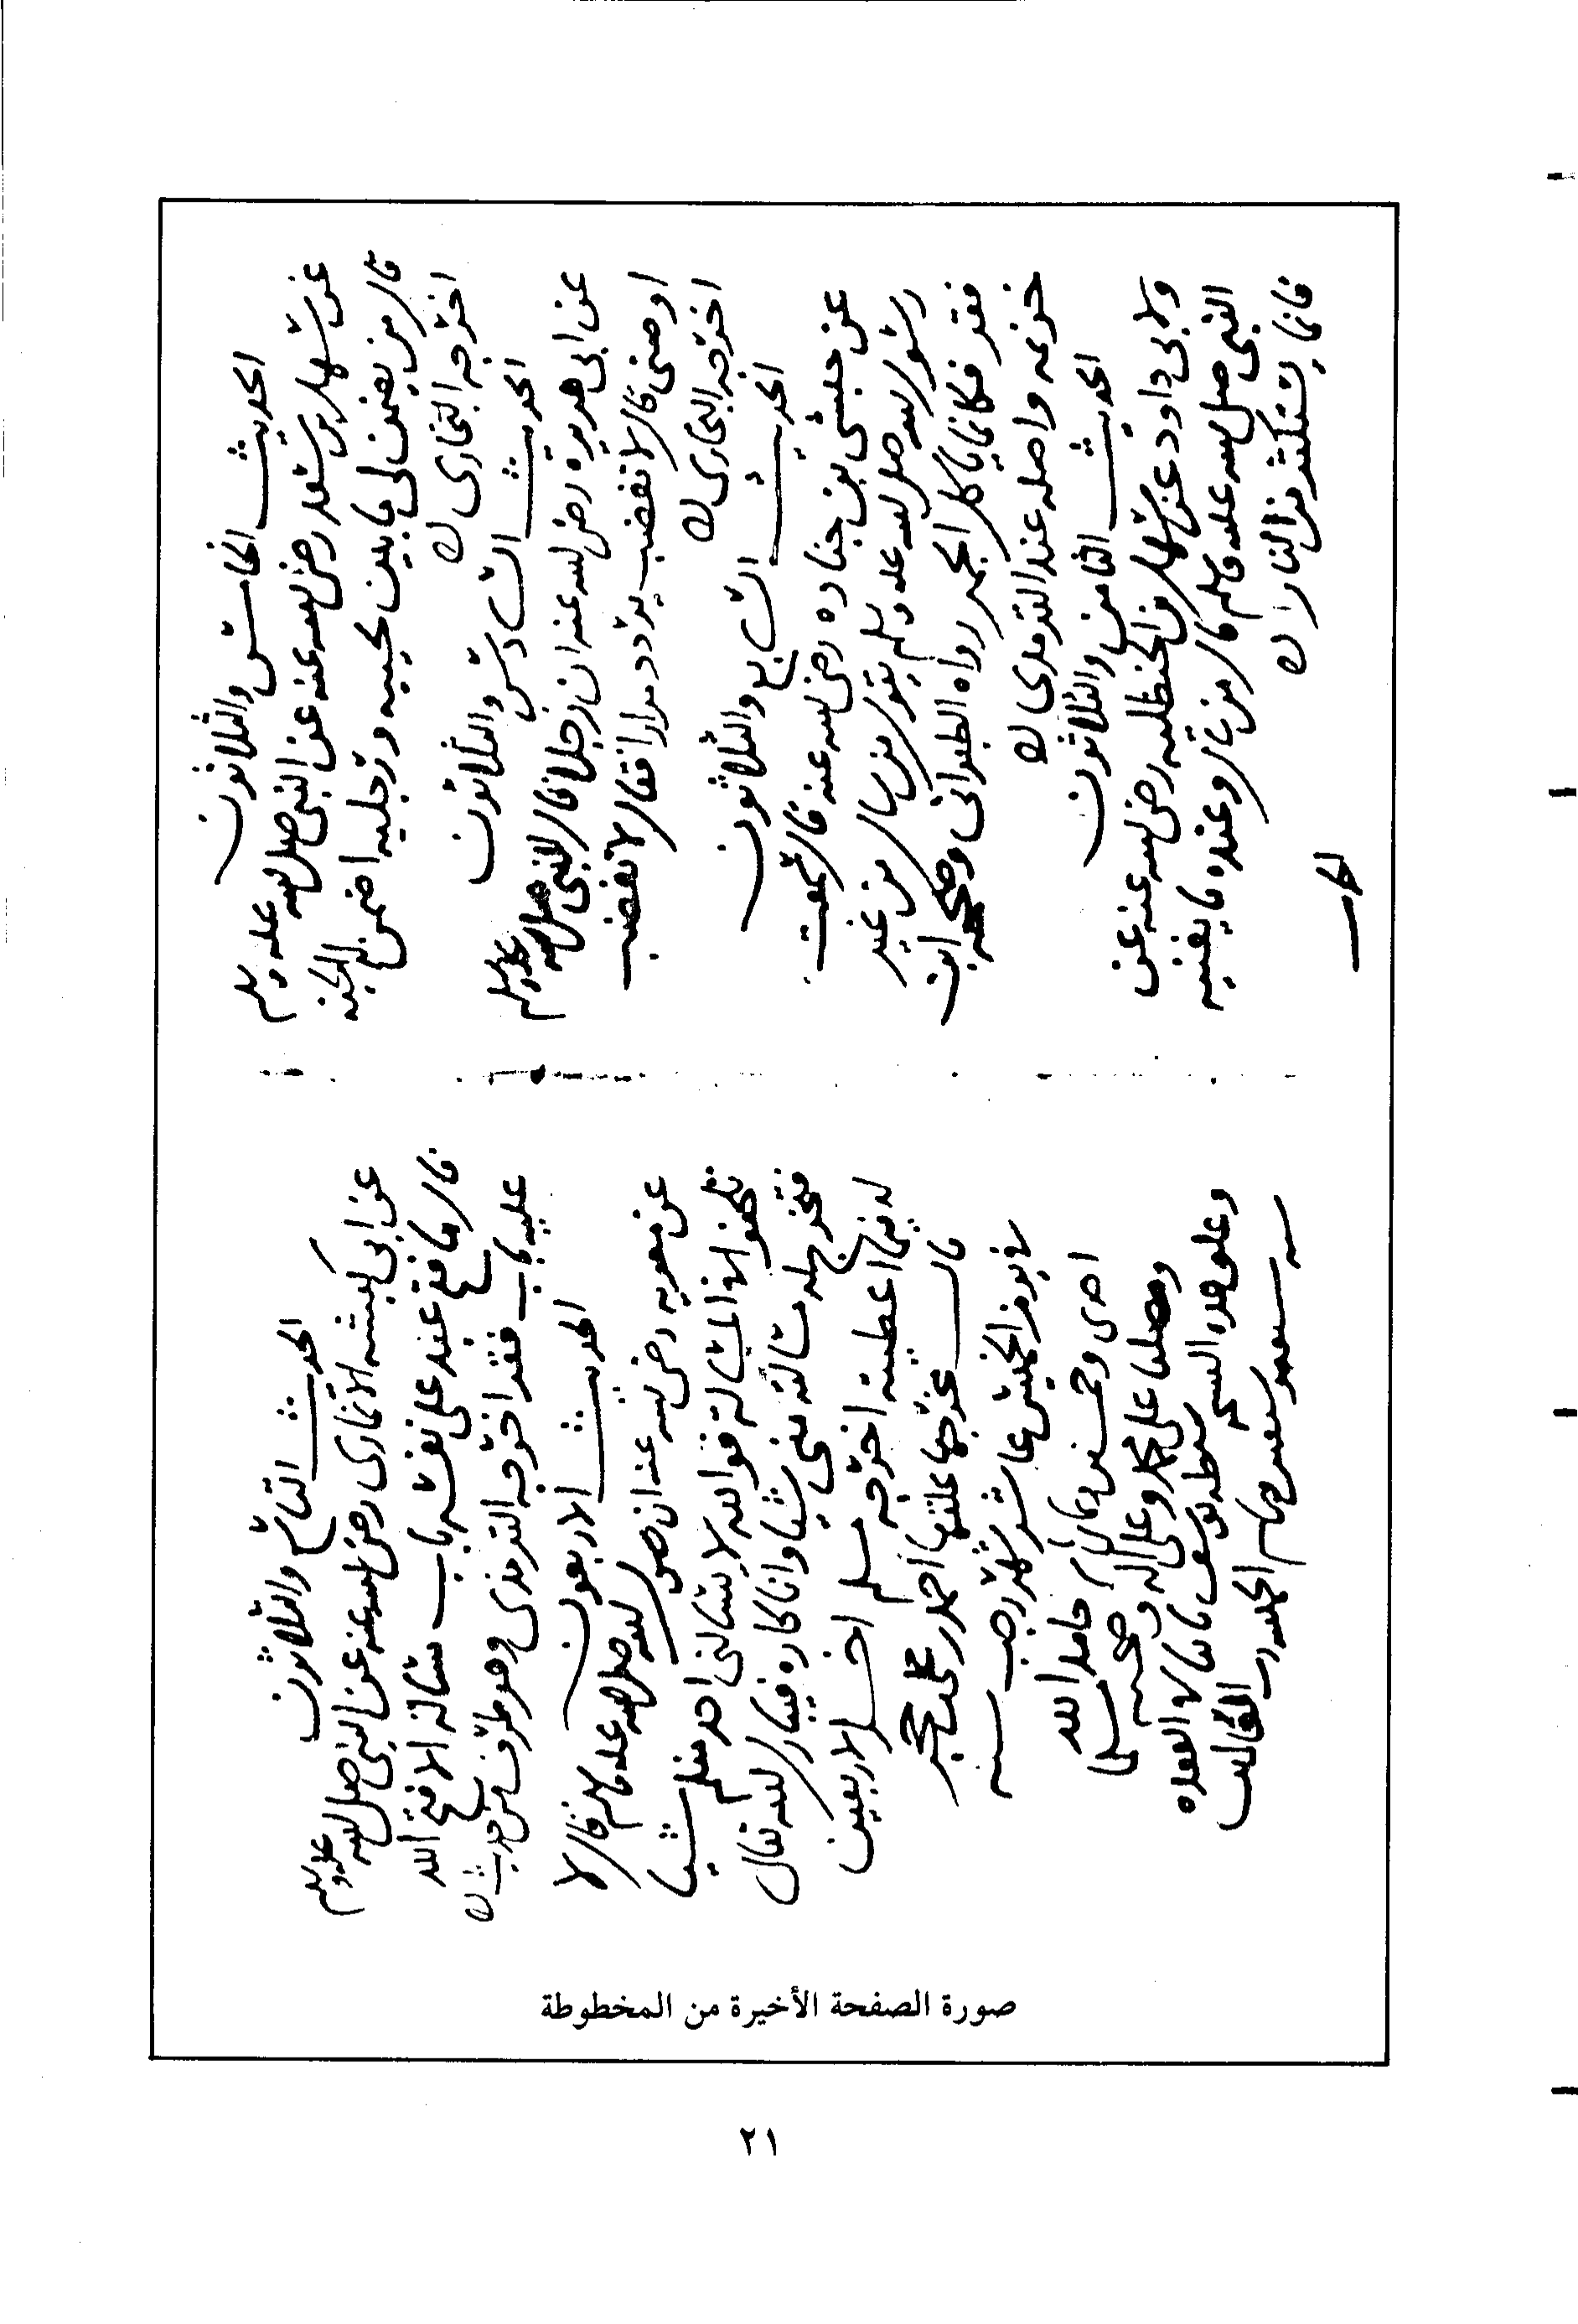 الحديث الخامس والثلاثون
عن سهل بن سعد رضي الله عنه عن النبي صلى الله عليه وسلم
قال من يضمن لي ما بين لحييه ورجليه اضمن له الجنة
اخرجه البخاري
الحديث السادس والثلاثون
عن ابي هريرة رضي الله عنه ان رجلا قال للنبي صلى الله عليه وسلم
اوصني قال لا تغضب يردد مرارا فقال لا تغضب
اخرجه البخاري
الحديث السابع والثلاثون
عن حبشي بن جناده رضي الله عنه قال سمعت
رسول الله صلى الله عليه وسلم يقول من سال من غير
فقر فكانما ياكل الجمر رواه الطبراني وصححه ابن
خزيمه واصله عند الترمذي
الحديث الثامن والثلاثون
ولابي داود عن سهل بن الحنظليه رضي الله عنه عن
النبي صلى الله عليه وسلم قال من سال وعنده ما يغنيه
فانما يستكثر من النار
الحديث التاسع والثلاثون
عن ابي كبشه الانماري رضي الله عنه عن النبي صلى الله عليه وسلم
قال ما فتح عبد على نفسه باب مسالة الا فتح الله
عليه باب فقر اخرجه الترمذي وهو طرف من حديث
الحديث الاربعون
عن معويه رضي الله عنه ان رسول الله صلى الله عليه وسلم قال لا
تلحفوا في المسالة فوالله لا يسالني احد منكم شيا
فتخرج له مسالته مني شيا وانا كاره فيبارك الله تعالى
له فيما اعطيته اخرجه مسلم اخر الاربعين
قال مخرجها علقتها احمد بن علي بن حجر
في يوم الخميس عاشر شهر رجب سنه
احدى وخمسين وثمان مايه حامدا لله
ومصليا على محمد وعلى اله وصحبه مسلما
وعلق هذه النسخه سبطه يوسف بن شاهين
صورة الصفحة الأخيرة من المخطوطة
٢١